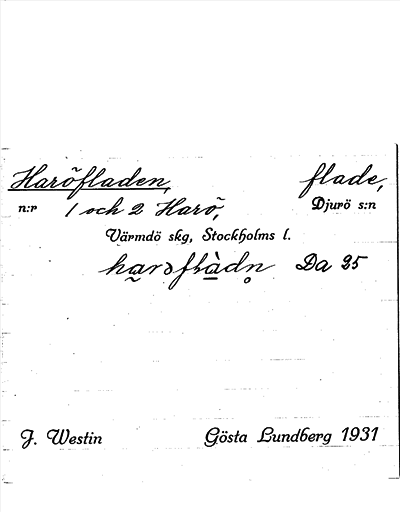 Haröfladen, flade,
n:r 1 och 2 Harö, Djurö s:n
Värmdö skg, Stockholms l.
Da 25
J. Westin Gösta Lundberg 1931